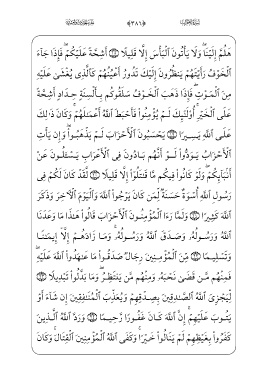 هَلُمَّ إِلَيْنَا وَلَا يَأْتُونَ ٱلْبَأْسَ إِلَّا قَلِيلًا ۝ أَشِحَّةً عَلَيْكُمْ فَإِذَا جَآءَ
ٱلْخَوْفُ رَأَيْتَهُمْ يَنظُرُونَ إِلَيْكَ تَدُورُ أَعْيُنُهُمْ كَٱلَّذِى يُغْشَىٰ عَلَيْهِ
مِنَ ٱلْمَوْتِ فَإِذَا ذَهَبَ ٱلْخَوْفُ سَلَقُوكُم بِأَلْسِنَةٍ حِدَادٍ أَشِحَّةً
عَلَى ٱلْخَيْرِ أُو۟لَٰٓئِكَ لَمْ يُؤْمِنُوا۟ فَأَحْبَطَ ٱللَّهُ أَعْمَٰلَهُمْ وَكَانَ ذَٰلِكَ
عَلَى ٱللَّهِ يَسِيرًا ۝ يَحْسَبُونَ ٱلْأَحْزَابَ لَمْ يَذْهَبُوا۟ وَإِن يَأْتِ
ٱلْأَحْزَابُ يَوَدُّوا۟ لَوْ أَنَّهُم بَادُونَ فِى ٱلْأَعْرَابِ يَسْـَٔلُونَ عَنْ
أَنۢبَآئِكُمْ وَلَوْ كَانُوا۟ فِيكُم مَّا قَٰتَلُوٓا۟ إِلَّا قَلِيلًا ۝ لَّقَدْ كَانَ لَكُمْ فِى
رَسُولِ ٱللَّهِ أُسْوَةٌ حَسَنَةٌ لِّمَن كَانَ يَرْجُوا۟ ٱللَّهَ وَٱلْيَوْمَ ٱلْـَٔاخِرَ وَذَكَرَ
ٱللَّهَ كَثِيرًا ۝ وَلَمَّا رَءَا ٱلْمُؤْمِنُونَ ٱلْأَحْزَابَ قَالُوا۟ هَٰذَا مَا وَعَدَنَا
ٱللَّهُ وَرَسُولُهُۥ وَصَدَقَ ٱللَّهُ وَرَسُولُهُۥ وَمَا زَادَهُمْ إِلَّآ إِيمَٰنًا
وَتَسْلِيمًا ۝ مِّنَ ٱلْمُؤْمِنِينَ رِجَالٌ صَدَقُوا۟ مَا عَٰهَدُوا۟ ٱللَّهَ عَلَيْهِ
فَمِنْهُم مَّن قَضَىٰ نَحْبَهُۥ وَمِنْهُم مَّن يَنتَظِرُ وَمَا بَدَّلُوا۟ تَبْدِيلًا ۝
لِّيَجْزِىَ ٱللَّهُ ٱلصَّٰدِقِينَ بِصِدْقِهِمْ وَيُعَذِّبَ ٱلْمُنَٰفِقِينَ إِن شَآءَ أَوْ
يَتُوبَ عَلَيْهِمْ إِنَّ ٱللَّهَ كَانَ غَفُورًا رَّحِيمًا ۝ وَرَدَّ ٱللَّهُ ٱلَّذِينَ
كَفَرُوا۟ بِغَيْظِهِمْ لَمْ يَنَالُوا۟ خَيْرًا وَكَفَى ٱللَّهُ ٱلْمُؤْمِنِينَ ٱلْقِتَالَ وَكَانَ